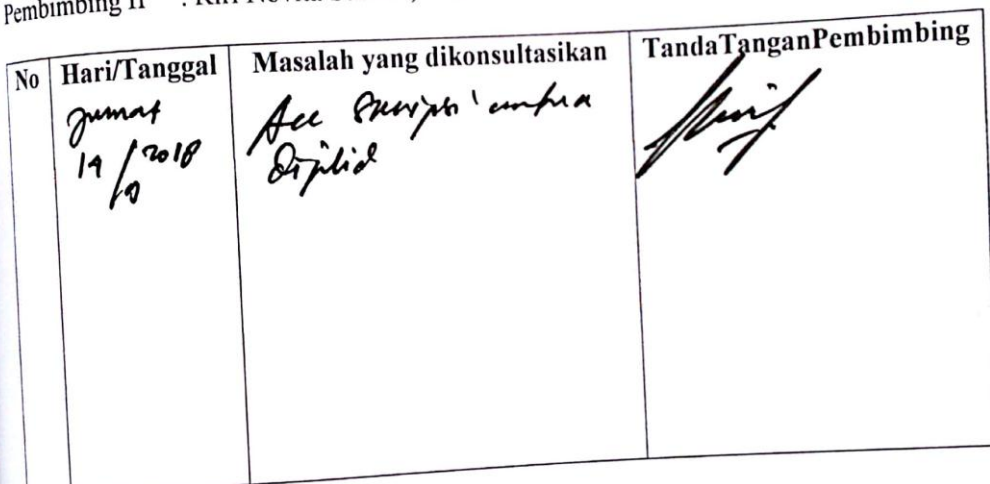 Pembimbing II :
No Hari/Tanggal Masalah yang dikonsultasikan TandaTanganPembimbing
Jumat Acc Skripsi untuk
19 / 2018 Dijilid